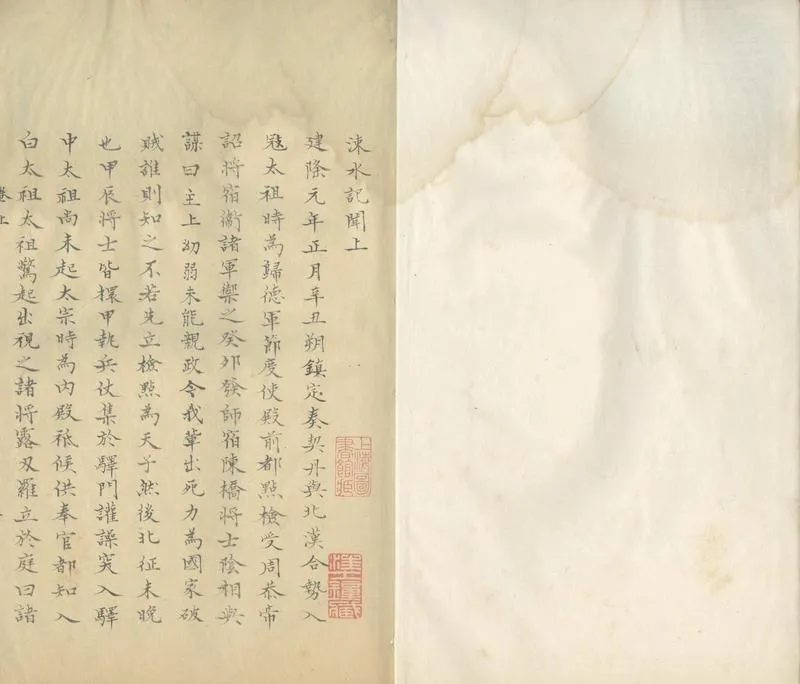 涑水記聞上
建隆元年正月辛丑朔鎮定奏契丹與北漢合勢入
冦太祖時為歸德軍節度使殿前都點檢受周恭帝
詔將宿衞諸軍禦之癸夘發師宿陳橋將士陰相與
謀曰主上幼弱未能親政今我軰出死力為國家破
賊誰則知之不若先立檢點為天子然後北征未晩
也甲辰將士皆擐甲執兵仗集於驛門讙譟突入驛
中太祖尚未起太宗時為内殿祗候供奉官都知入
白太祖太祖驚起出視之諸將露刄羅立於庭曰諸
卷上
上海圖
書館藏